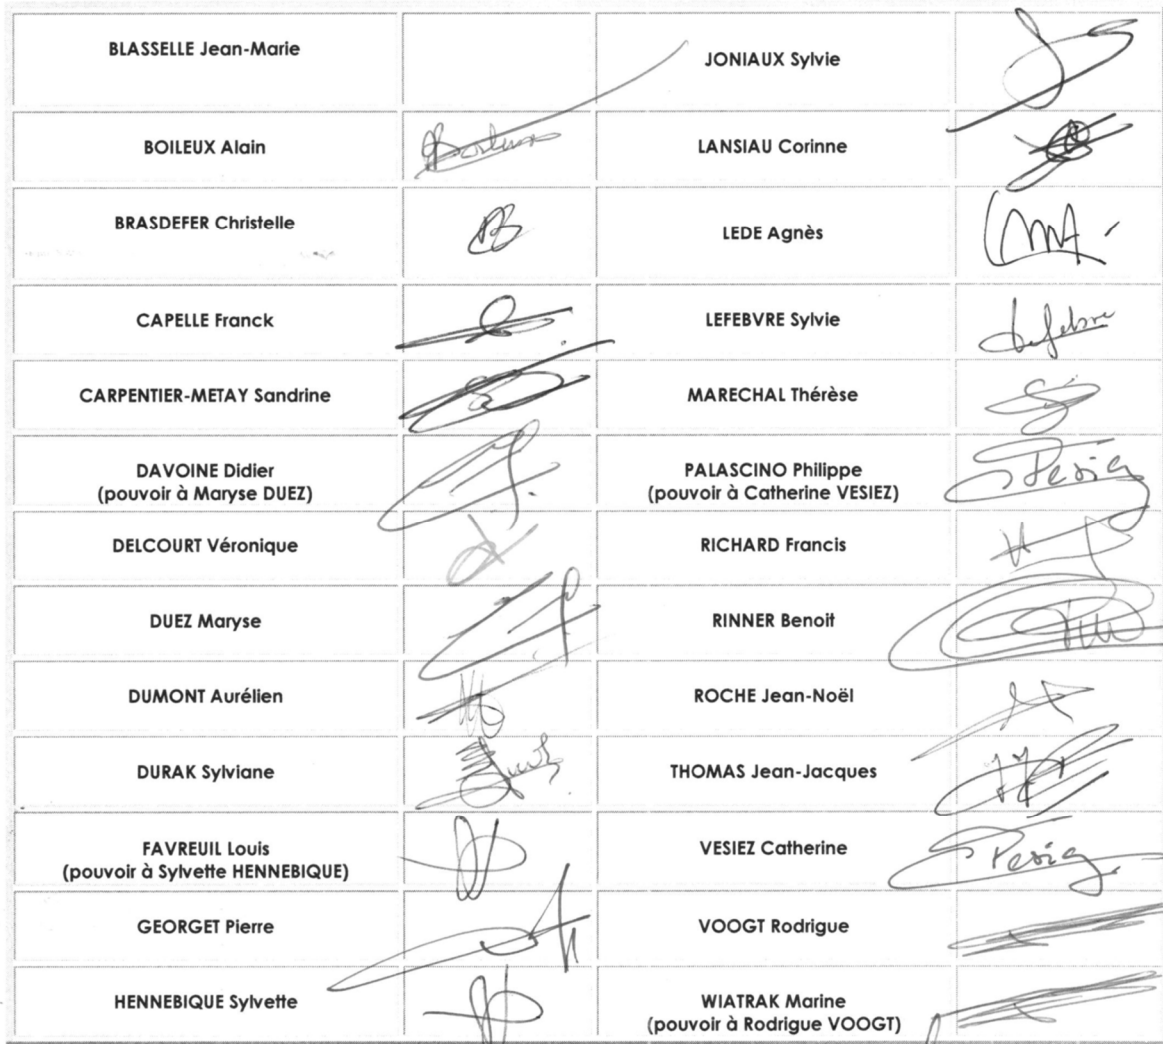 BLASSELLE Jean-Marie
JONIAUX Sylvie
BOILEUX Alain
Boileux
LANSIAU Corinne
BRASDEFER Christelle
LEDE Agnès
CAPELLE Franck
LEFEBVRE Sylvie
Lefebvre
CARPENTIER-METAY Sandrine
MARECHAL Thérèse
DAVOINE Didier
(pouvoir à Maryse DUEZ)
PALASCINO Philippe
(pouvoir à Catherine VESIEZ)
DELCOURT Véronique
RICHARD Francis
DUEZ Maryse
RINNER Benoit
DUMONT Aurélien
ROCHE Jean-Noël
DURAK Sylviane
THOMAS Jean-Jacques
FAVREUIL Louis
(pouvoir à Sylvette HENNEBIQUE)
VESIEZ Catherine
GEORGET Pierre
VOOGT Rodrigue
HENNEBIQUE Sylvette
WIATRAK Marine
(pouvoir à Rodrigue VOOGT)